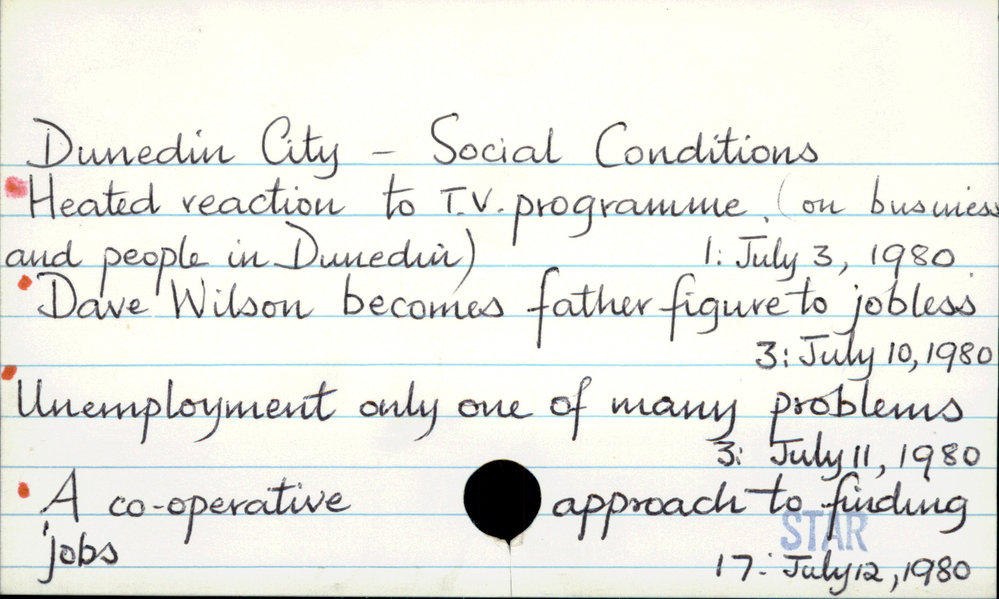 Dunedin City – Social Conditions
Heated reaction to T.V. programme. (on business
and people in Dunedin) 1: July 3, 1980
Dave Wilson becomes father figure to jobless
3: July 10, 1980
Unemployment only one of many problems
3: July 11, 1980
A co-operative approach to finding
STAR
jobs
17: July 12, 1980